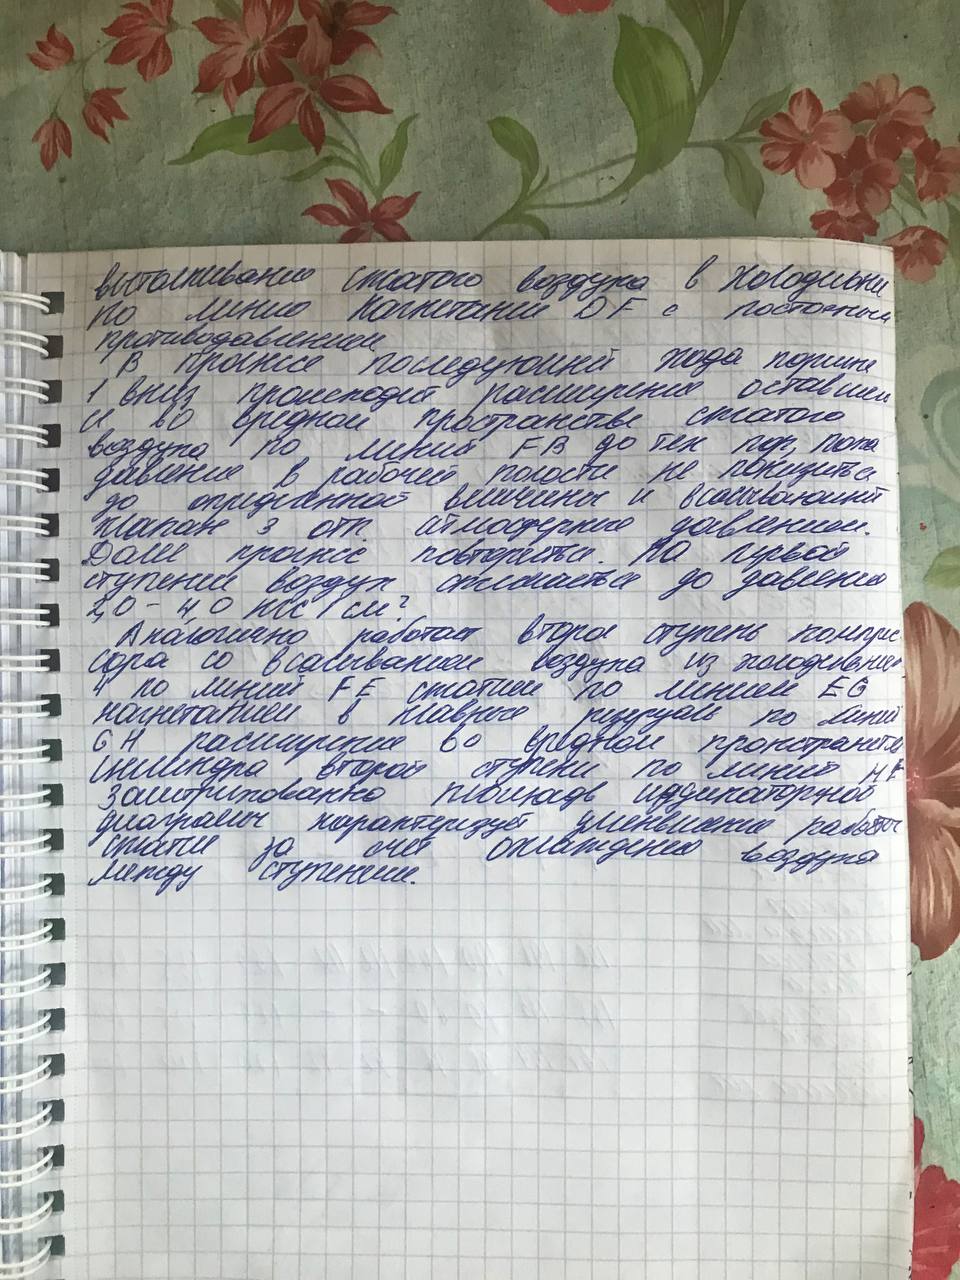 выталкивание сжатого воздуха в холодильник
по линию нагнетание DF с постоянным
противодавлением
В процессе последующей хода поршня
1 вниз происходит расширение оставший
и во вредной пространстве сжатого
воздуха по линий FB до тех пор, пока
давление в рабочей полости не понизиться
до определенной величины и всасывающий
клапан 3 отк. атмосферные давлением.
Далее процесс повториться. На первой
ступени воздух сжимается до давления
2,0 - 4,0 кгс / см²
Аналогично работает вторая ступень компрес
сора со всасыванием воздуха из холодильник
4 по линий FE сжатием по линием EG
нагнетанием в главные резервуары по линий
GH расширение во вредной пронстранстве
цилиндра второй ступени по линий HF
Заштрихованно площадь индикаторной
диаграмм характеризует уменьшение работы
сжатие за счет охлаждение воздуха
между ступеними.